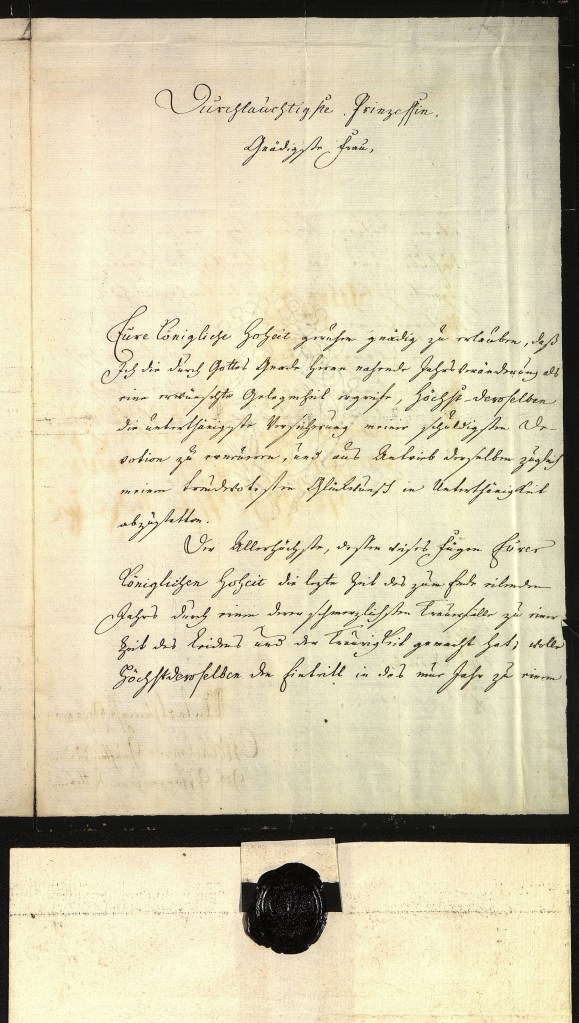 Durchlauchtigste Prinzessin.
Gnädigste Frau,
Eure Königliche Hoheit geruhen gnädig zu erlauben, daß
Ich die durch Gottes Gnade heran nahende Jahrs Veränderung als
eine erwünschte Gelegenheit ergreife, Höchst-Denenselben
die unterthänigste Versicherung meiner schuldigsten De-
votion zu erneuern, und aus Antrieb derselben zugleich
meinen Glückwunsch in Unterthänigkeit
abzustatten.
Der Allerhöchste, dessen weises Fügen Eurer
Königlichen Hoheit die lezte Zeit des zum Ende eilenden
Jahrs durch einen derer schmerzlichsten Trauerfälle zu einer
Zeit des Leidens und der Traurigkeit gemacht hat, wolle
Höchstdenenselben den Eintritt in das neue Jahr zu einem